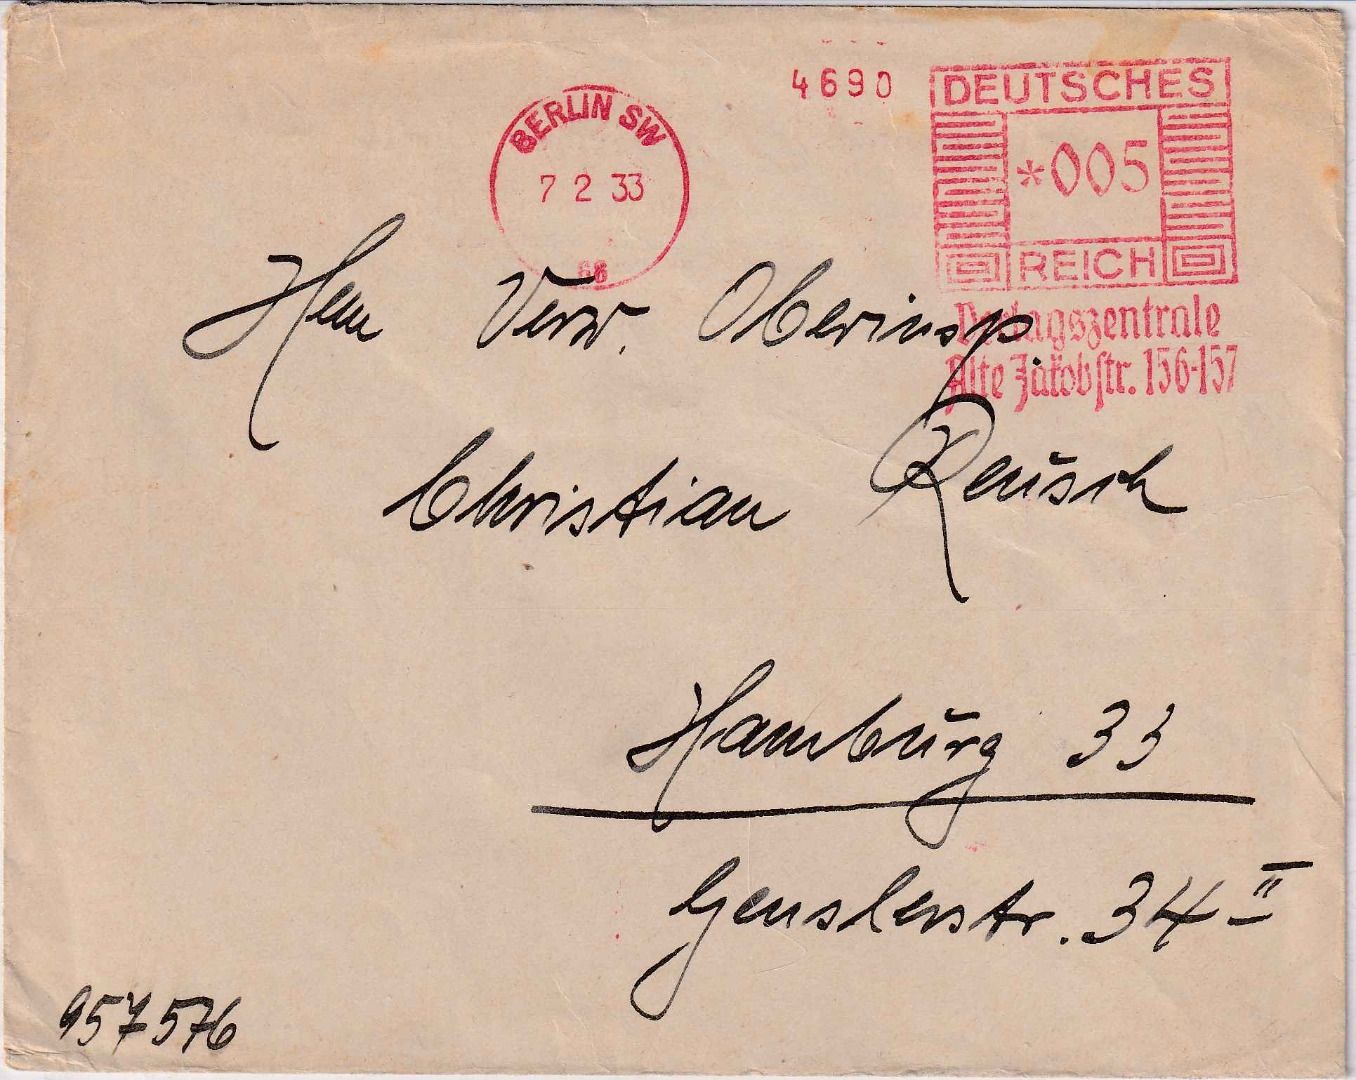 4690
DEUTSCHES
BERLIN SW
*005
7 2 33
REICH
68
Verlagszentrale
Alte Jakobstr. 156-157
Herrn Verw. Oberinsp
Christian Reŭsch
Hambŭrg 33
Genslerstr. 34 II
957576